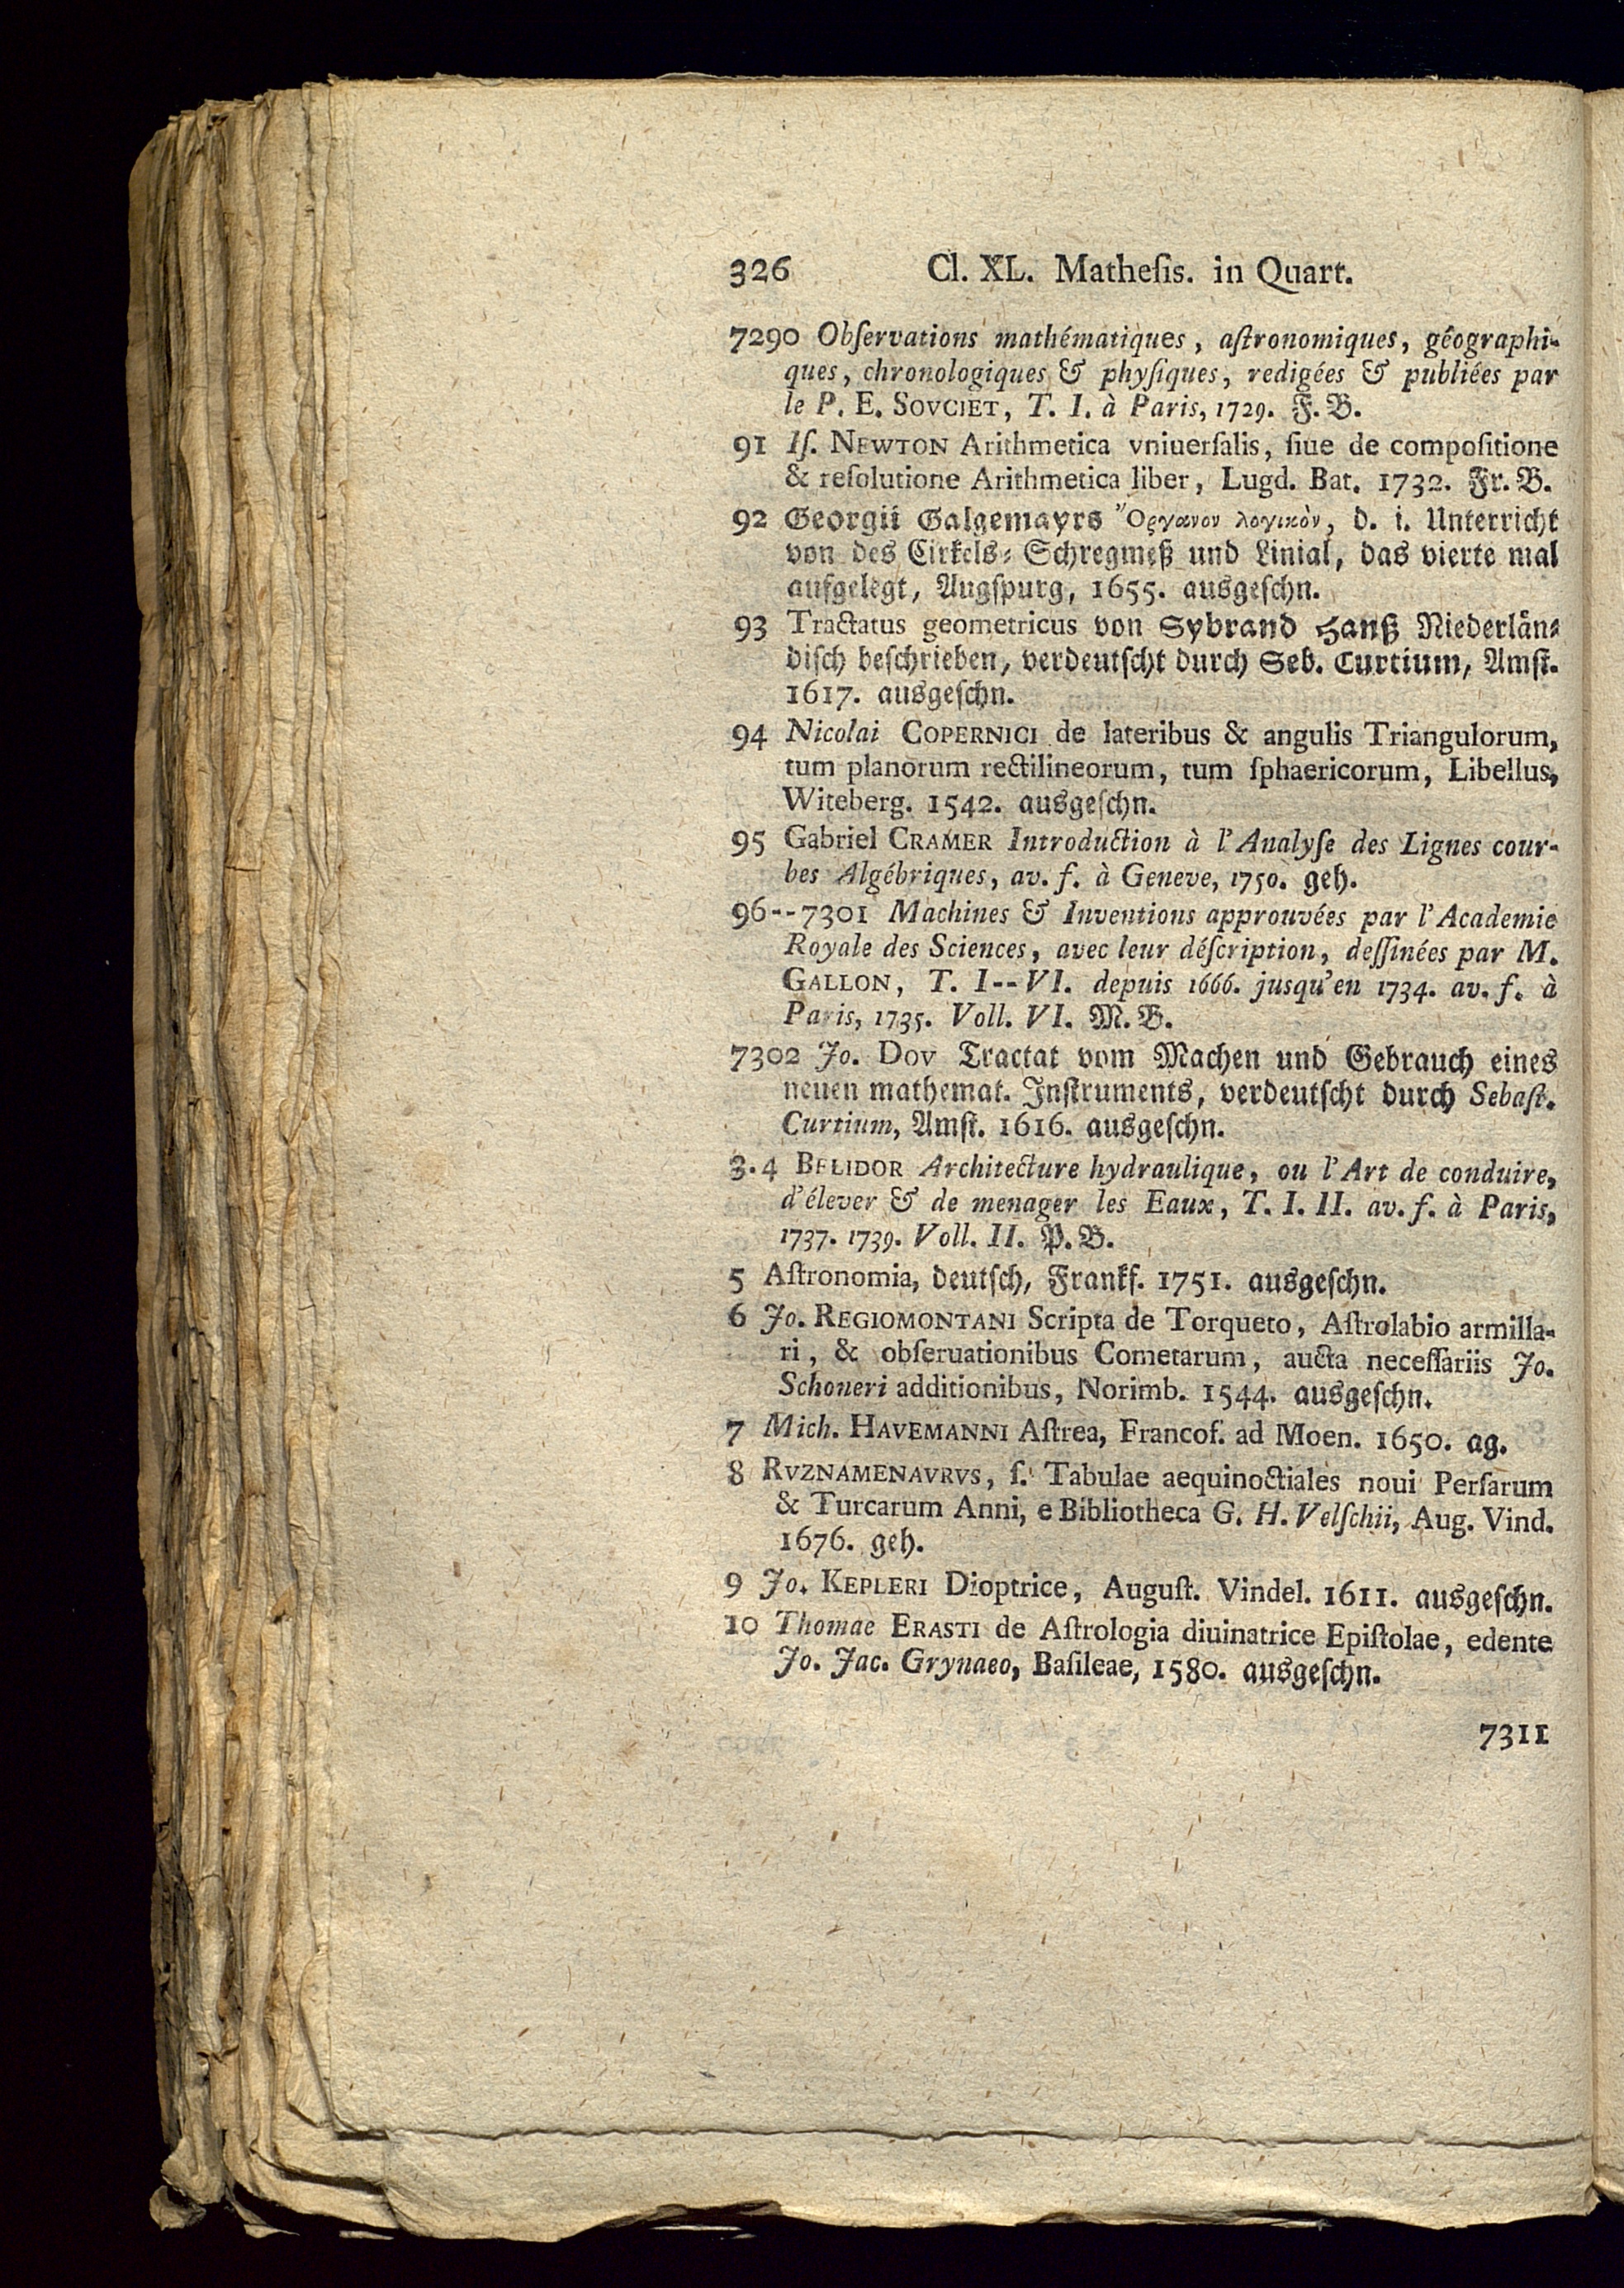 326 Cl. XL. Matheſis. in Quart.
7290 Obſervations mathématiques, aſtronomiques, gêographi-
ques, chronologiques & phyſiques, redigées & publiées par
le P. E. SOVCIET, T. I. à Paris, 1729. F. B.
91 Iſ. NEWTON Arithmetica vniuerſalis, ſiue de compoſitione
& reſolutione Arithmetica liber, Lugd. Bat. 1732. Fr. B.
92 Georgii Galgemayrs Ὄργανον λογικὸν, d. i. Unterricht
von des Cirkels⸗ Schregmeß und Linial, das vierte mal
aufgelegt, Augſpurg, 1655. ausgeſchn.
93 Tractatus geometricus von Sybrand Hanß Niederlän⸗
diſch beſchrieben, verdeutſcht durch Seb. Curtium, Amſt.
1617. ausgeſchn.
94 Nicolai COPERNICI de lateribus & angulis Triangulorum,
tum planorum rectilineorum, tum ſphaericorum, Libellus,
Witeberg. 1542. ausgeſchn.
95 Gabriel CRAMER Introduction à l'Analyſe des Lignes cour-
bes Algébriques, av. f. à Geneve, 1750. geh.
96--7301 Machines & Inventions approuvées par l'Academie
Royale des Sciences, avec leur déſcription, deſſinées par M.
GALLON, T. I--VI. depuis 1666. jusqu'en 1734. av. f. à
Paris, 1735. Voll. VI. M. B.
7302 Jo. DOV Tractat vom Machen und Gebrauch eines
neuen mathemat. Inſtruments, verdeutſcht durch Sebaſt.
Curtium, Amſt. 1616. ausgeſchn.
3.4 BELIDOR Architecture hydraulique, ou l'Art de conduire,
d'élever & de menager les Eaux, T. I. II. av. f. à Paris,
1737. 1739. Voll. II. P. B.
5 Aſtronomia, deutſch, Frankf. 1751. ausgeſchn.
6 Jo. REGIOMONTANI Scripta de Torqueto, Aſtrolabio armilla-
ri, & obſeruationibus Cometarum, aucta neceſſariis Jo.
Schoneri additionibus, Norimb. 1544. ausgeſchn.
7 Mich. HAVEMANNI Aſtrea, Francof. ad Moen. 1650. ag.
8 RVZNAMENAVRVS, ſ. Tabulae aequinoctiales noui Perſarum
& Turcarum Anni, e Bibliotheca G. H. Velſchii, Aug. Vind.
1676. geh.
9 Jo. KEPLERI Dioptrice, Auguſt. Vindel. 1611. ausgeſchn.
10 Thomae ERASTI de Aſtrologia diuinatrice Epiſtolae, edente
Jo. Jac. Grynaeo, Baſileae, 1580. ausgeſchn.
7311